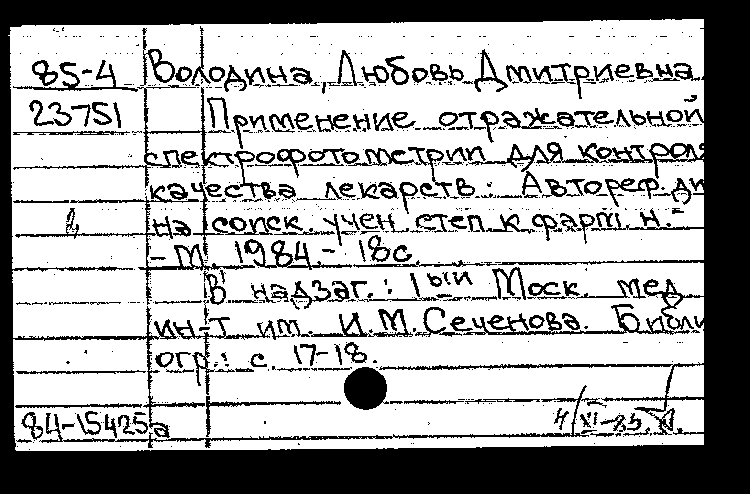 85-4 Володина, Любовь Дмитриевна
23751 Применение отражательной
спектрофотометрии для контроля
качества лекарств: Автореф. ди
на соиск. учен. степ. к. фарм. н. -
- М. 1984. - 18 с.
В надзаг.: 1ый Моск. мед.
ин-т им. И.М. Сеченова. Библи
огр.: с. 17-18.
84-15425а 4/XI-85.